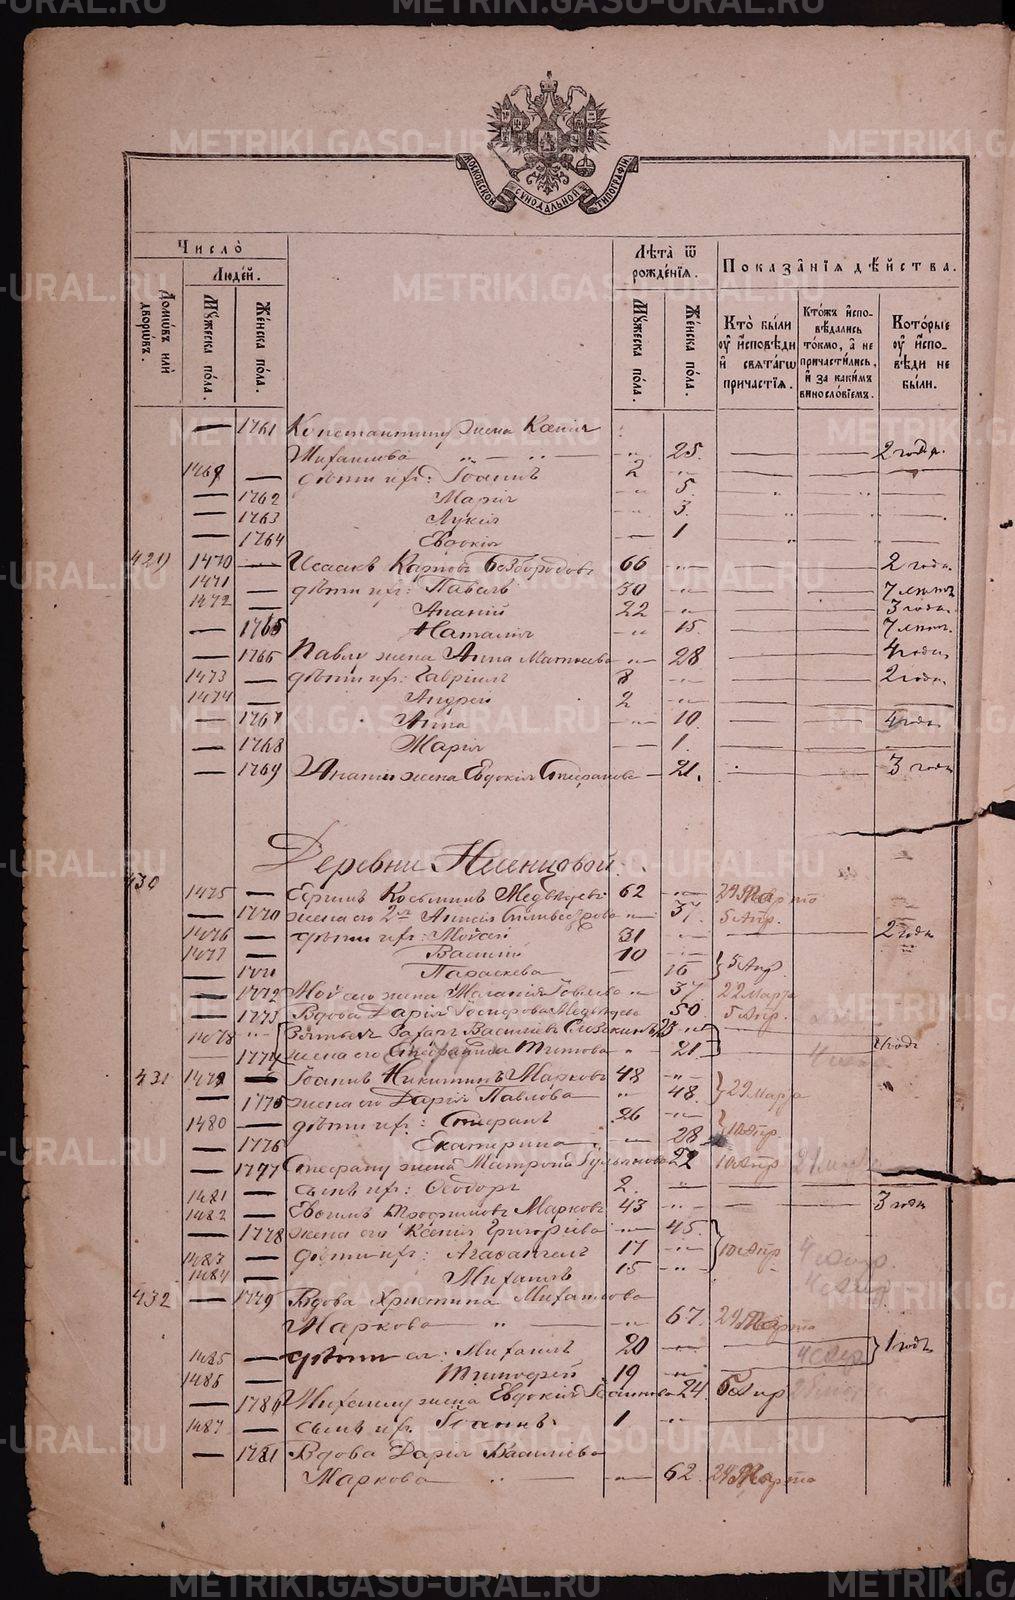 МОСКОВСКОЙ СѴНОДАЛЬНОЙ ТИПОГРАФІИ
Число
Людей.
Домѡвъ или дворѡвъ.
Мꙋжеска пола.
Женска пола.
Лѣта ѿ рожденїѧ.
Мꙋжеска пола.
Женска пола.
Показанїѧ дѣйства.
Кто были ᲂу҆ исповѣди и свѧтагѡ причастїѧ.
Ктожъ исповѣдались токмо, а не причастились, и за какимъ винословїемъ.
Которые ᲂу҆ исповѣди не были.
— 1761 Константину жена Ксенія
Михаилова — " — 25. 2 года.
1469 — дѣти ихъ: Іоаннъ 2
— 1762 Марія 5
— 1763 Лукія 3
— 1764 Евдокія 1
429 1470 — Исаакъ Карповъ Безбородовъ 66 2 года.
1471 — дѣти ихъ: Павелъ 30 7 лѣтъ
1472 — Ананій 22 3 года.
— 1765 Наталія 15 7 лѣтъ.
— 1766 Павлу жена Анна Матѳеева 28 4 года
1473 — дѣти ихъ: Гавріилъ 8 2 года.
1474 — Андрей 2
— 1767 Анна 10 4 года.
— 1768 Марія 1.
— 1769 Ананію жена Евдокія Стефанова 21. 3 года
Деревни
430
1475 — Козьминъ Медвѣдевъ 62 29 Марта
— 1770 жена его 2я Анисія Сильвестрова 37. 5 Апр.
1476 — дѣти ихъ: Мойсей 31 2 года
1477 — Василій 10
— 1771 Параскева 16 5 Апр.
— 1772 Мойсею жена Маланія 37 22 Марта
— 1773 Вдова Дарія Медвѣдева 50 5 Апр.
1478 " Зятьевъ Захаръ Васильевъ 23 годъ
— 1774 жена его Стефанида Титова 21
431 1479 — Іоаннъ Никитинъ Марковъ 48
— 1775 жена его Дарія Павлова 48. 29 Марта
1480 — дѣти ихъ: Стефанъ 26
— 1776 Екатерина 28 10 Апр.
— 1777 Стефану жена Матрона 22 10 Апр
1481 — сынъ ихъ: Ѳеодоръ 2.
1482 — Евѳимъ Трофимовъ Марковъ 43 3 года
— 1778 жена его Ксенія Григорьева 45.
1483 — дѣти ихъ: Агаѳангелъ 17 10 Апр
1484 — Михаилъ 15
432 — 1779 Вдова Христина Михаилова
Маркова — " — 67. 29 Марта
1485 — дѣти ея: Михаилъ 20 1 годъ
1486 — Тимоѳей 19
— 1780 Михаилу жена Евдокія Іоаннова 24 5 Апр
1487 — сынъ ихъ Іоаннъ 1
— 1781 Вдова Дарія Васильева
Маркова — " — 62. 29 Марта
METRIKI.GASO-URAL.RU